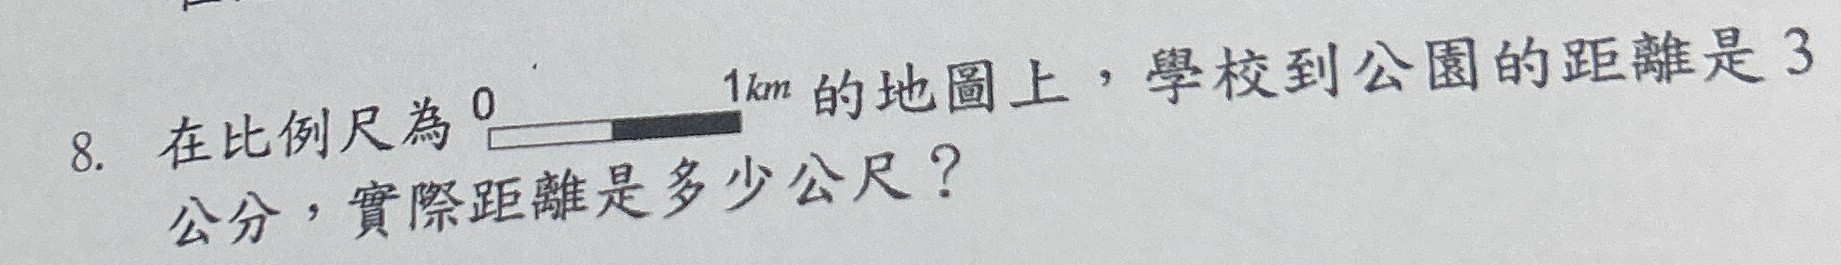 8. 在比例尺為 0 1km 的地圖上，學校到公園的距離是 3
公分，實際距離是多少公尺？